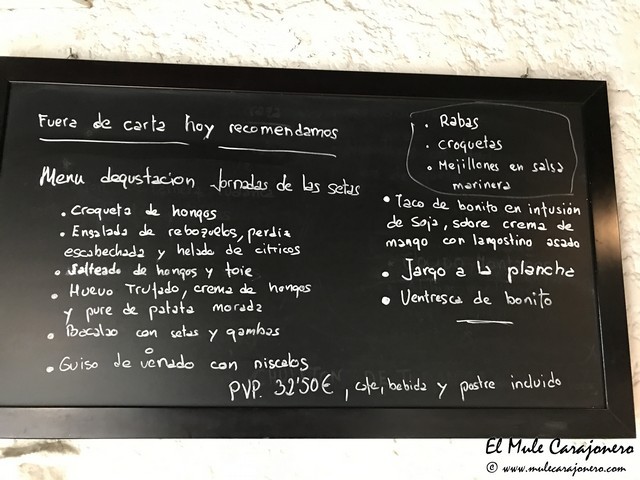 Fuera de carta hoy recomendamos
Menu degustacion Jornadas de las setas
• Croqueta de hongos
• Ensalada de rebozuelos, perdiz
escabechada y helado de citricos
• Salteado de hongos y foie
• Huevo Trufado, crema de hongos
y pure de patata morada
• Bacalao con setas y gambas
• Guiso de venado con niscalos
PVP. 32'50€, cafe, bebida y postre incluido
• Rabas
• Croquetas
• Mejillones en salsa
marinera
• Taco de bonito en infusión
de Soja, sobre crema de
mango con langostino asado
• Jargo a la plancha
• Ventresca de bonito
El Mule Carajonero
© www.mulecarajonero.com